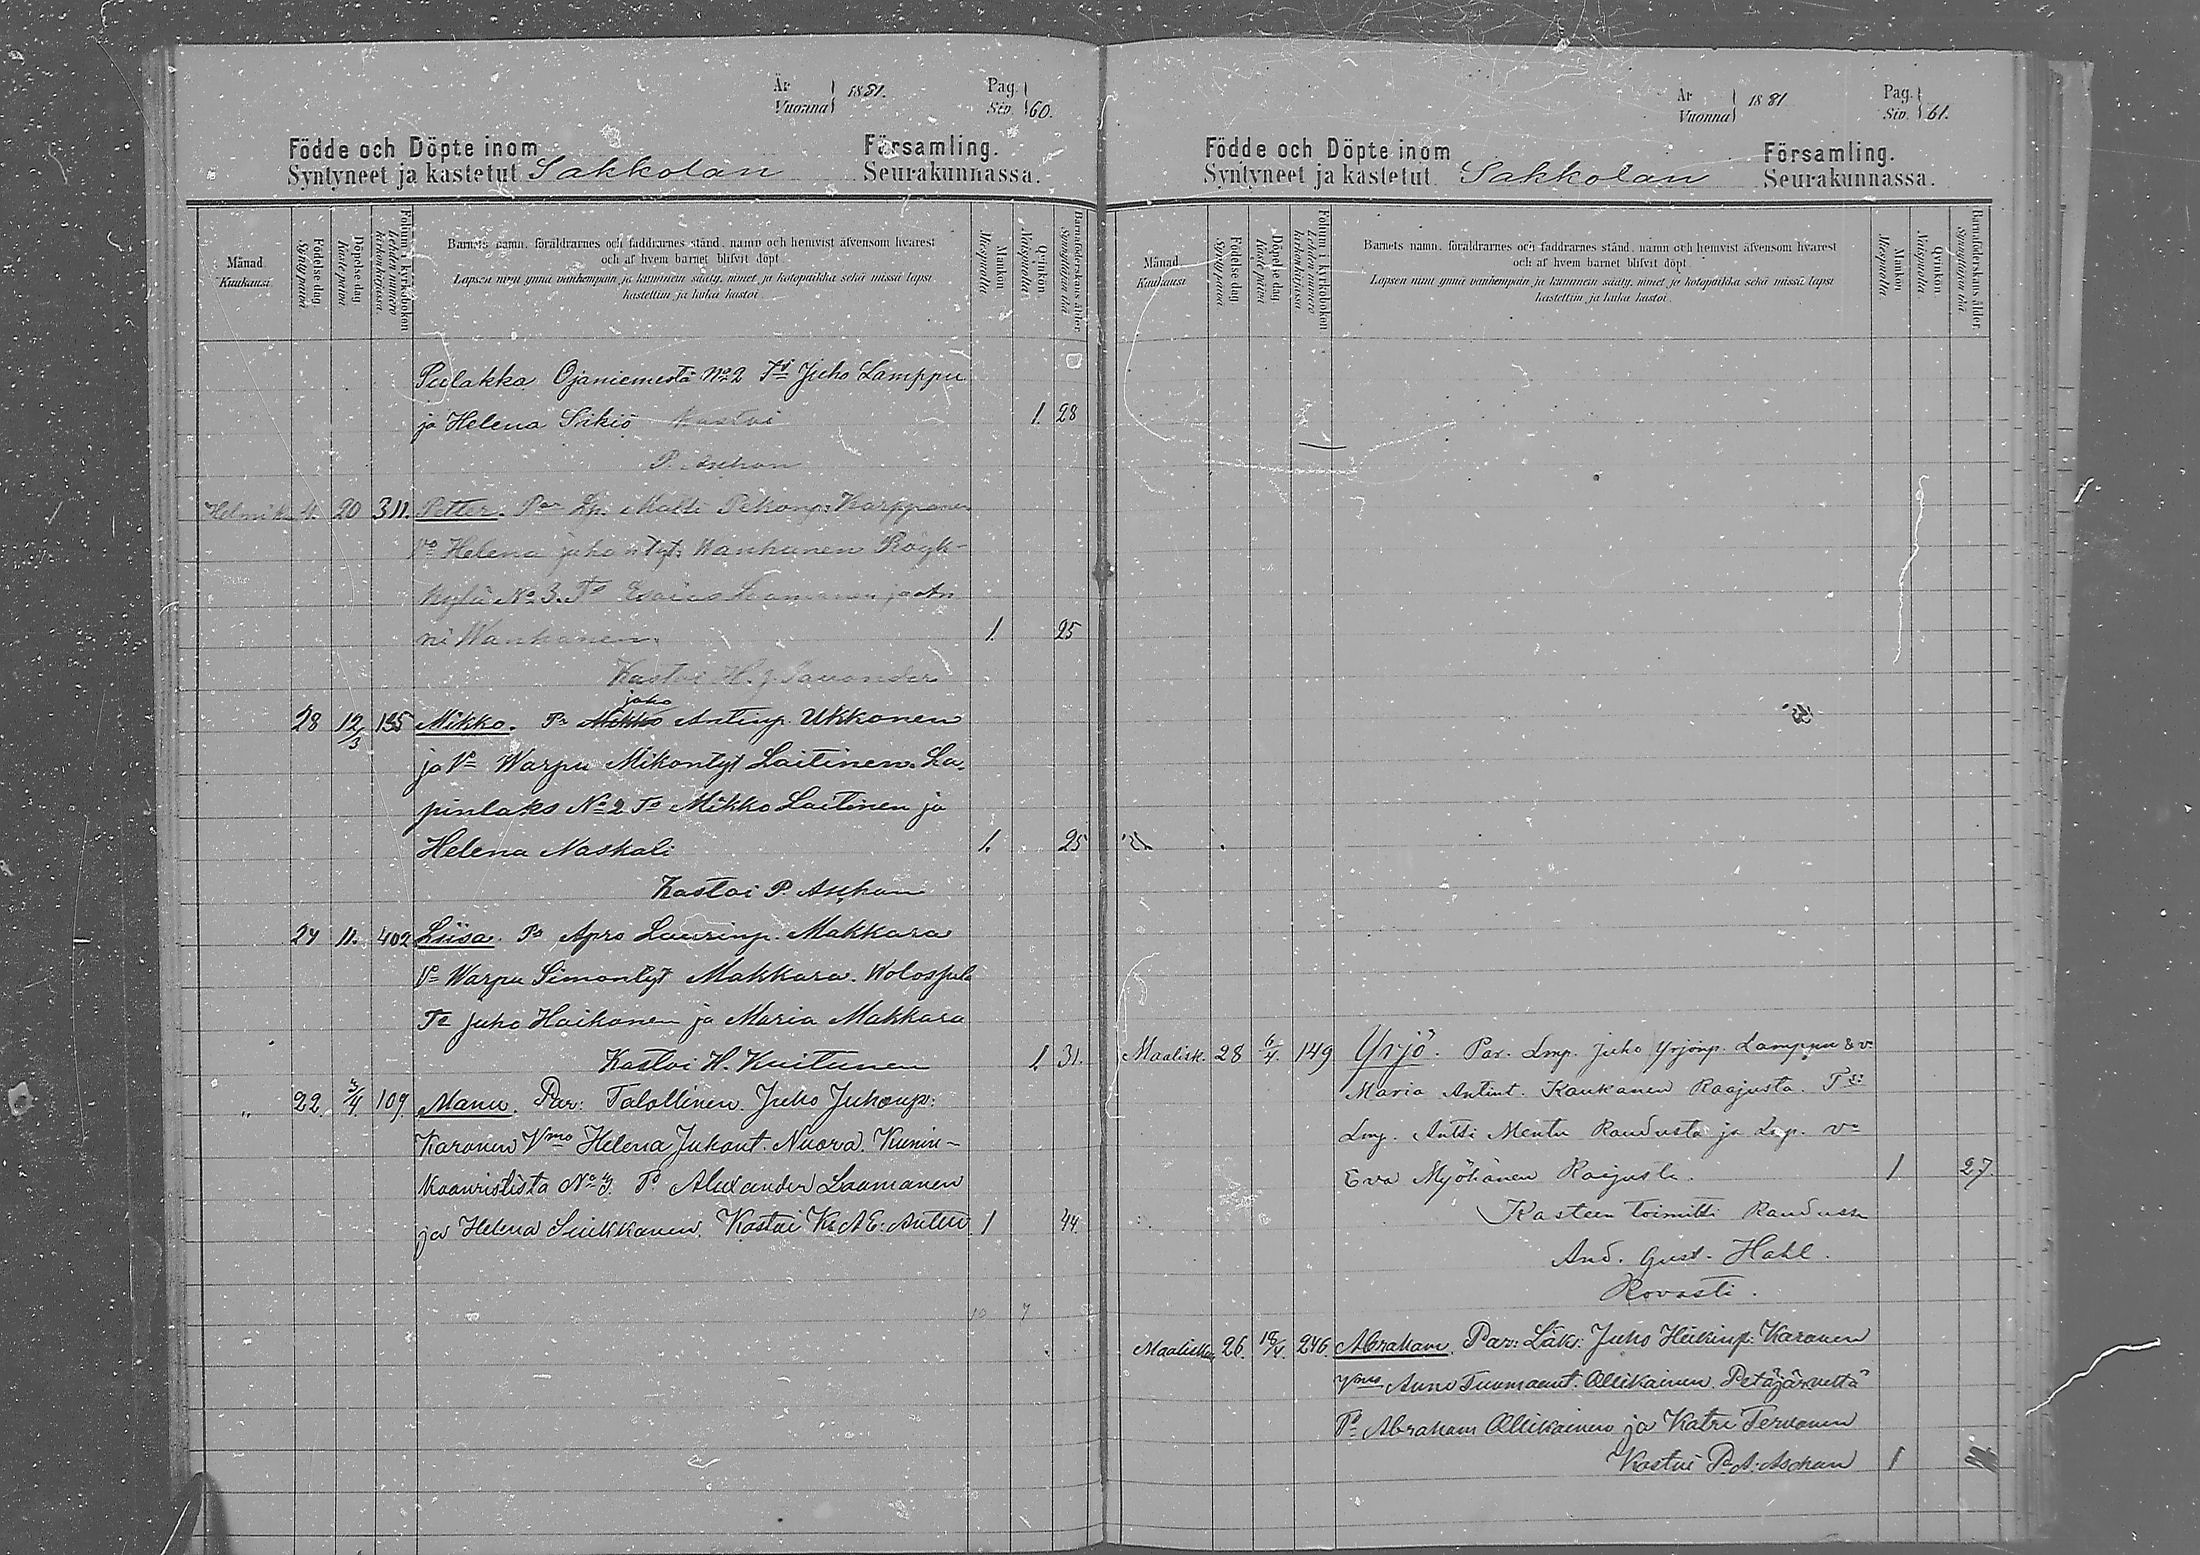 År
Vuonna 1881.
Pag.
Siv. 60.
Födde och Döpte inom Församling.
Syntyneet ja kastetut Sakkolan Seurakunnassa.
Månad
Kuukausi
Födelsedag
Syntypäivä
Döpelsedag
Kastepäivä
Folium i kyrkoboken
Lehden numero kirkonkirjassa
Barnets namn, föräldrarnes och faddrarnes stånd, namn och hemvist äfvensom hvarest
och af hvem barnet blifvit döpt.
Lapsen nimi ynnä vanhempain ja kummein sääty, nimet ja kotopaikka sekä missä lapsi
kastettiin ja kuka kastoi.
Mankön
Miespuolia
Qvinkön
Naispuolia
Barnaföderskans ålder
Pulakka Ojaniemestä No 2 Ti Juho Lamppu
ja Helena Sikiö Kastoi 1. 28
P. Aschan
Helmik. 4. 20 311. Petter. Par Lp. Matti Pekanp: Karppanen
Vo Helena juhontyt: Wanhanen Röyk-
kylä No 3. To Esaias Laamanen ja An
ni Wanhanen. 1. 25
Kastoi H. J. Savander
juho
28 12/3 135 Mikko. Pr Mikko Antinp. Ukkonen
ja Vo Warpu Mikontyt Laitinen. La-
pinlaks No 2 To Mikko Laitinen ja
Helena Naskali 1. 25
Kastoi P. Aschan
24 11. 402 Liisa. Po Apro Laurinp. Makkara
Vo Warpu Simontyt Makkara. Wolospula
To Juho Haikonen ja Maria Makkara
Kastoi H. Kuitunen 1. 31.
„ 22. 3/4 109. Manu. Par: Talollinen Juho Juhonp:
Karonen Vmo Helena Juhont. Nuora. Kunin-
kaanristista No 3. To Alexander Laamanen
ja Helena Siukkanen. Kastoi Kr A E: 1 44.
10 7
År
Vuonna 1881
Pag.
Siv. 61.
Födde och Döpte inom Församling.
Syntyneet ja kastetut Sakkolan Seurakunnassa.
Månad
Kuukausi
Födelsedag
Syntypäivä
Döpelsedag
Kastepäivä
Folium i kyrkoboken
Lehden numero kirkonkirjassa
Barnets namn, föräldrarnes och faddrarnes stånd, namn och hemvist äfvensom hvarest
och af hvem barnet blifvit döpt.
Lapsen nimi ynnä vanhempain ja kummein sääty, nimet ja kotopaikka sekä missä lapsi
kastettiin ja kuka kastoi.
Mankön
Miespuolia
Qvinkön
Naispuolia
Barnaföderskans ålder
Maalisk. 28 6/4. 149 Yrjö. Par. Lmp. Juho Yrjönp. Lamppu & vo
Maria Antint. Kaukanen Raajusta. To:
Lmp. Antti Mentu Raudusta ja Lmp. vo
Eva Myöhänen Raajusta. 1. 27.
Kasteen toimitti Raudussa
And. Gust. Hahl.
Rovasti.
Maalisk. 26. 18/4. 246. Abraham. Par: Läks: Juho Heikinp: Karonen
Vmo Anna Tuomaant. Ollikainen. Petäjärveltä
To Abraham Ollikainen ja Katri Tervonen
Kastoi P. A. Aschan 1